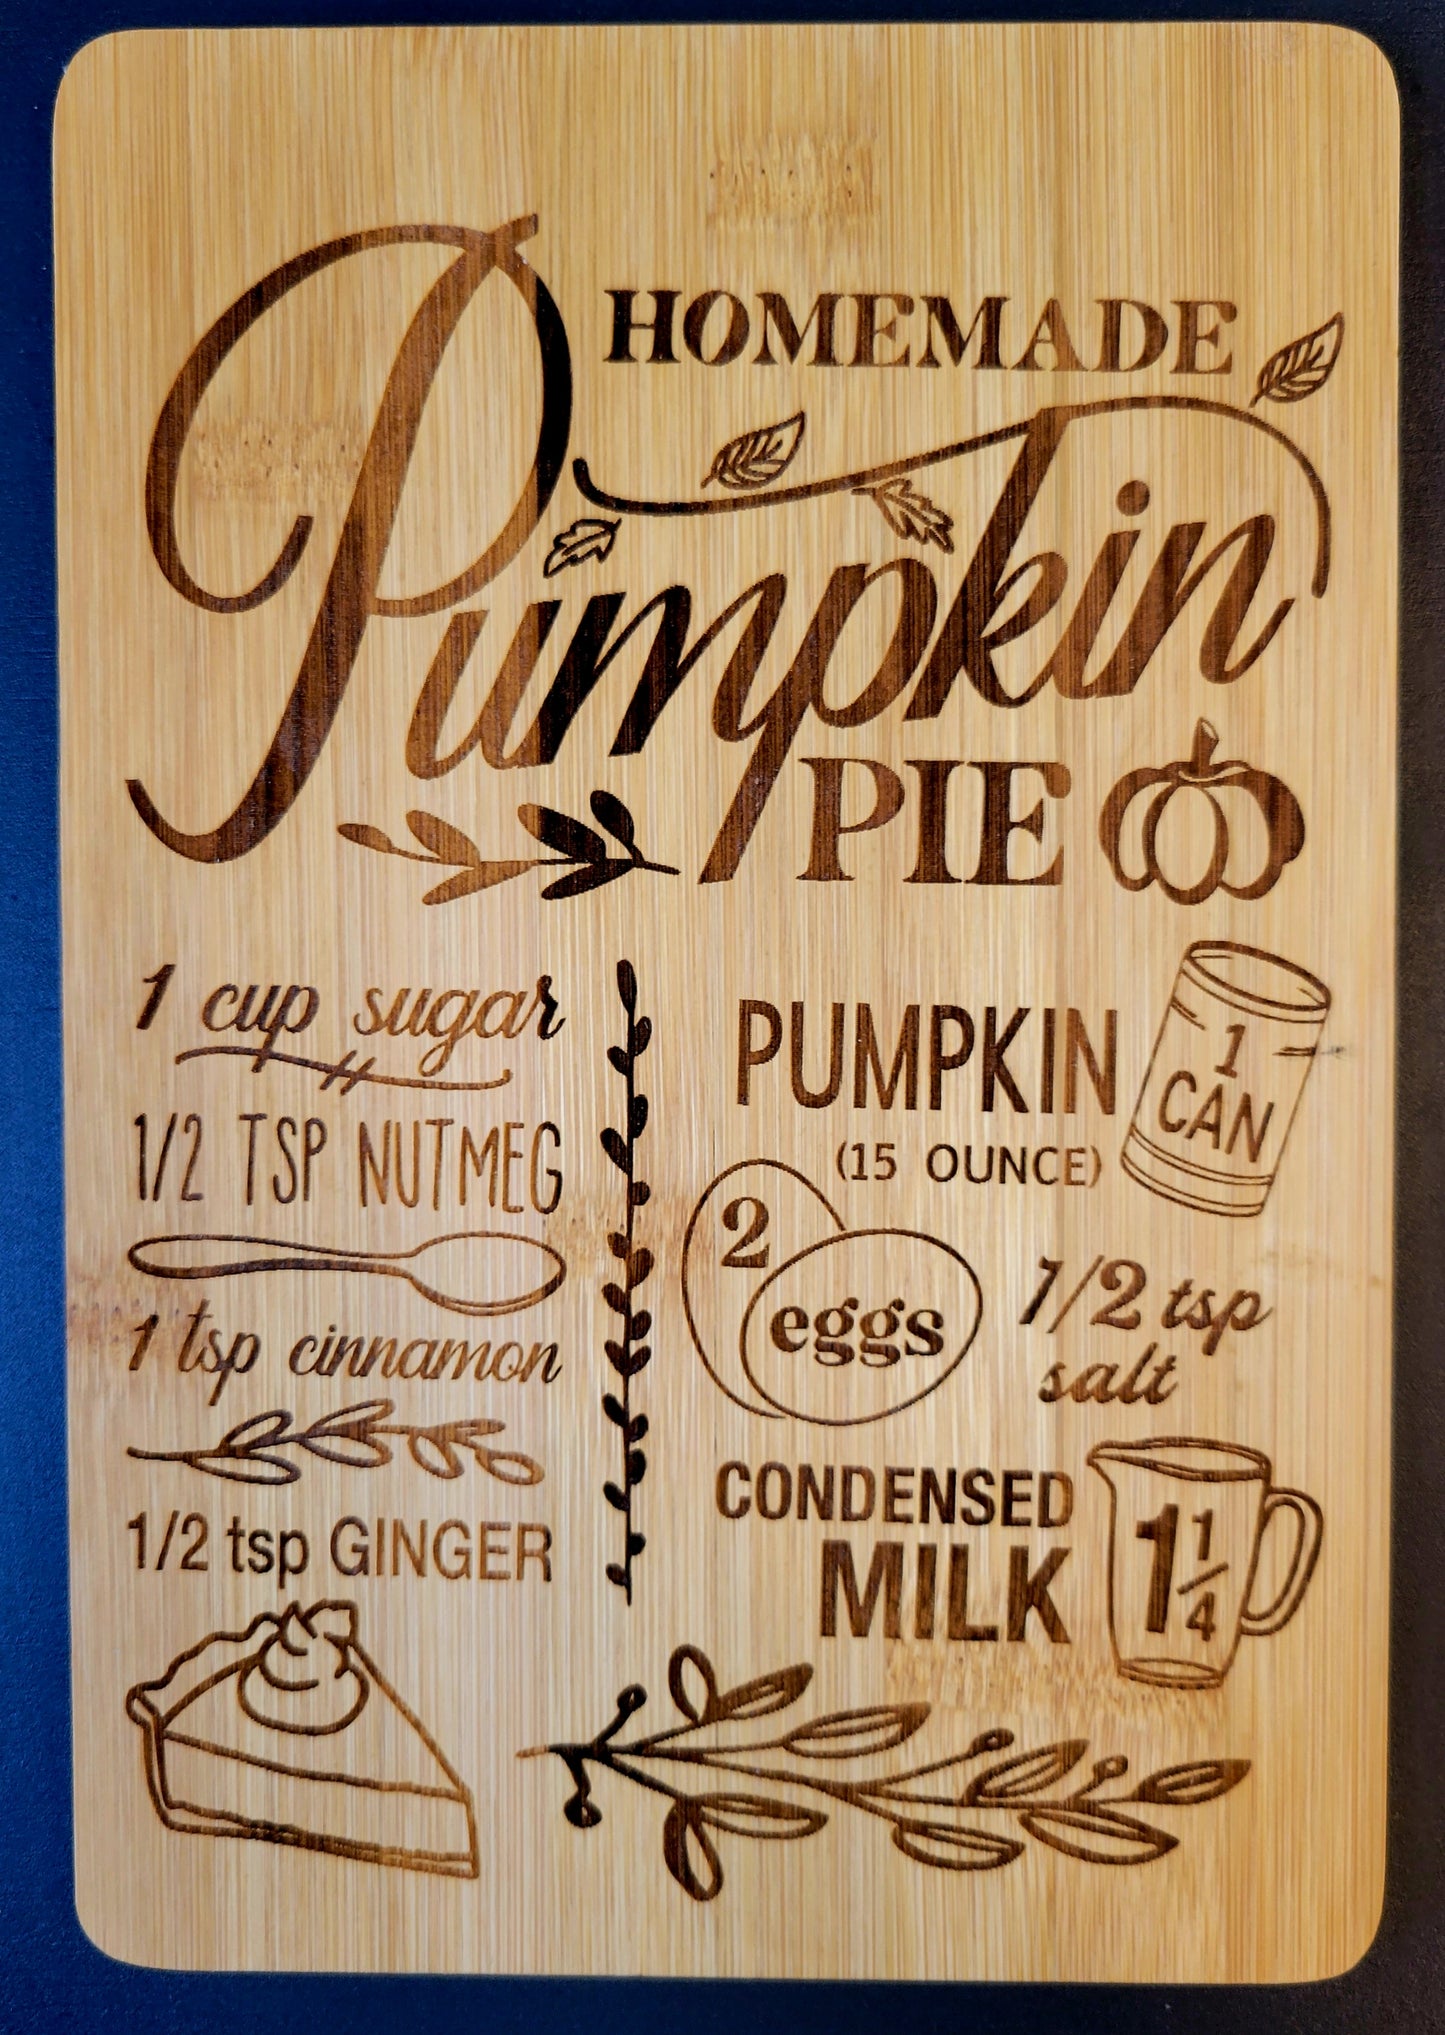 HOMEMADE
Pumpkin
PIE
1 cup sugar
1/2 TSP NUTMEG
1 tsp cinnamon
1/2 tsp GINGER
PUMPKIN
(15 OUNCE)
1
CAN
2
eggs
1/2 tsp
salt
CONDENSED
MILK
1 1/4